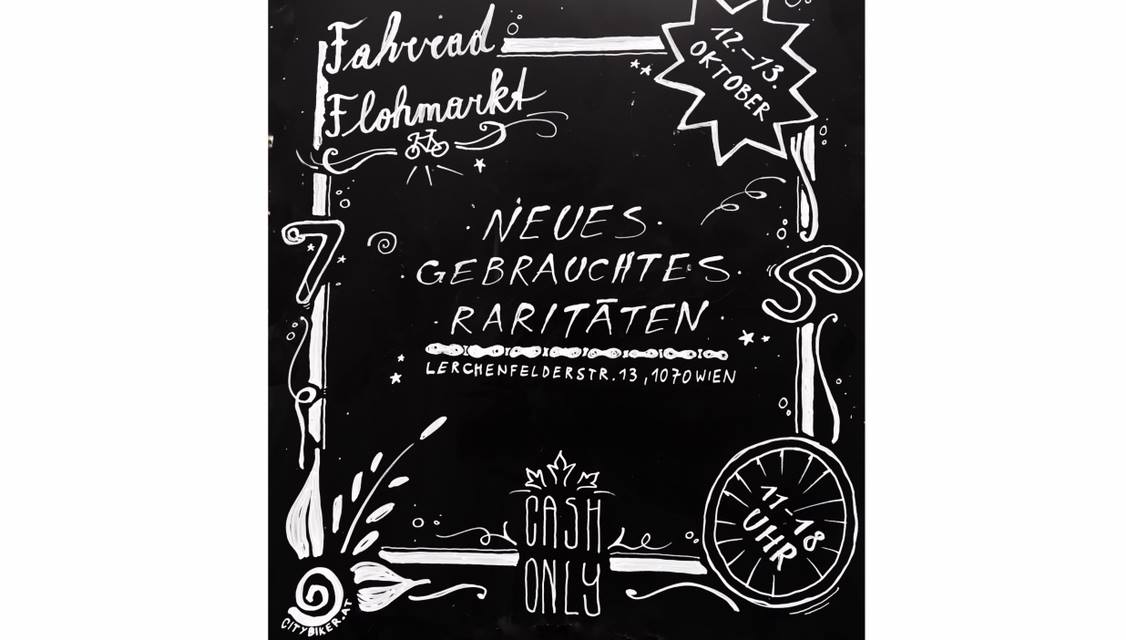 Fahrrad
Flohmarkt
12.-13.
OKTOBER
7
NEUES
GEBRAUCHTES
RARITÄTEN
LERCHENFELDERSTR. 13, 1070 WIEN
11-18
UHR
CASH
ONLY
CITYBIKER.AT